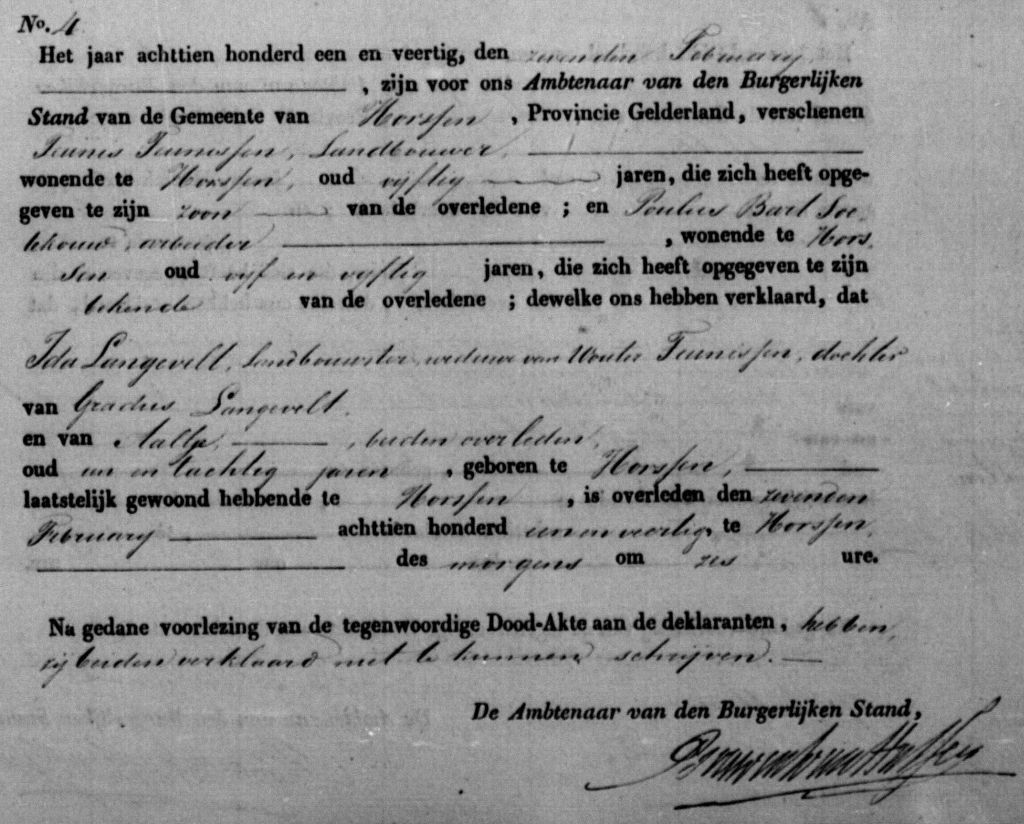 No. 4
Het jaar achttien honderd een en veertig, den zevenden February
, zijn voor ons Ambtenaar van den Burgerlijken
Stand van de Gemeente van Horssen, Provincie Gelderland, verschenen
Teunis Teunissen, Landbouwer,
wonende te Horssen, oud vijftig jaren, die zich heeft opge-
geven te zijn zoon van de overledene ; en Paulus Bart
arbeider , wonende te Hors
sen oud vijf en vijftig jaren, die zich heeft opgegeven te zijn
bekende van de overledene ; dewelke ons hebben verklaard, dat
Ida Langevelt, Landbouwster, weduwe van Wouter Teunissen, dochter
van Gradus Langevelt,
en van Aaltje , beiden overleden,
oud een en tachtig jaren , geboren te Horssen,
laatstelijk gewoond hebbende te Horssen , is overleden den zevenden
February achttien honderd een en veertig, te Horssen,
des morgens om zes ure.
Na gedane voorlezing van de tegenwoordige Dood-Akte aan de deklaranten, hebben
zij beiden verklaard niet te kunnen schrijven.
De Ambtenaar van den Burgerlijken Stand,